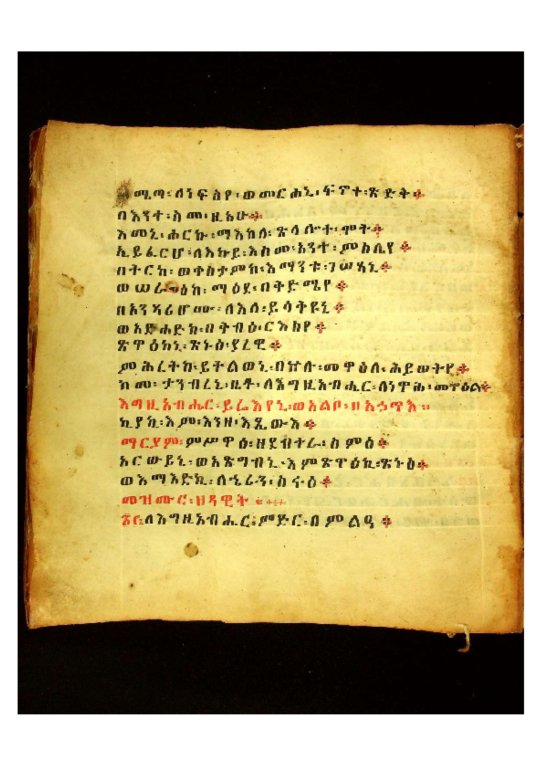 ሜጣ፡ ለነፍስየ፡ ወመርሐኒ፡ ፍኖተ፡ ጽድቅ።
በእንተ፡ ስሙ፡ ዚአሁ።
እመኒ፡ ሖርኩ፡ ማእከለ፡ ጽላሎተ፡ ሞት።
ኢይፈርህ፡ ለእኩይ፡ እስመ፡ አንተ፡ ምስሌየ።
በትርከ፡ ወቀስታምከ፡ እማንቱ፡ ገሠጻኒ።
ወሠራዕከ፡ ማዕደ፡ በቅድሜየ።
በአንጻሪሆሙ፡ ለእለ፡ ይሳቅዩኒ።
ወአጽሐድከ፡ በቅብዕ፡ ርእስየ።
ጽዋዕከኒ፡ ጽኑዕ፡ ያረዊ።
ምሕረትከ፡ ይትልወኒ፡ በኵሉ፡ መዋዕለ፡ ሕይወትየ።
ከመ፡ ታንብረኒ፡ ቤቶ፡ ለእግዚአብሔር፡ ለነዋሕ፡ መዋዕል።
እግዚአብሔር፡ ይሬእየኒ፡ ወአልቦ፡ ዘአኃጥእ።
ኪያኪ፡ እም፡ እንዘ፡ እጼውእ።
ማርያም፡ ምሥዋዕ፡ ዘደብተራ፡ ስምዕ።
አርውይኒ፡ ወአጽግብኒ፡ እምጽዋዕኪ፡ ጽኑዕ።
ወእማእድኪ፡ ለኄራን፡ ስኑዕ።
መዝሙር፡ ዘዳዊት።
፳፫ ለእግዚአብሔር፡ ምድር፡ በምልዓ።